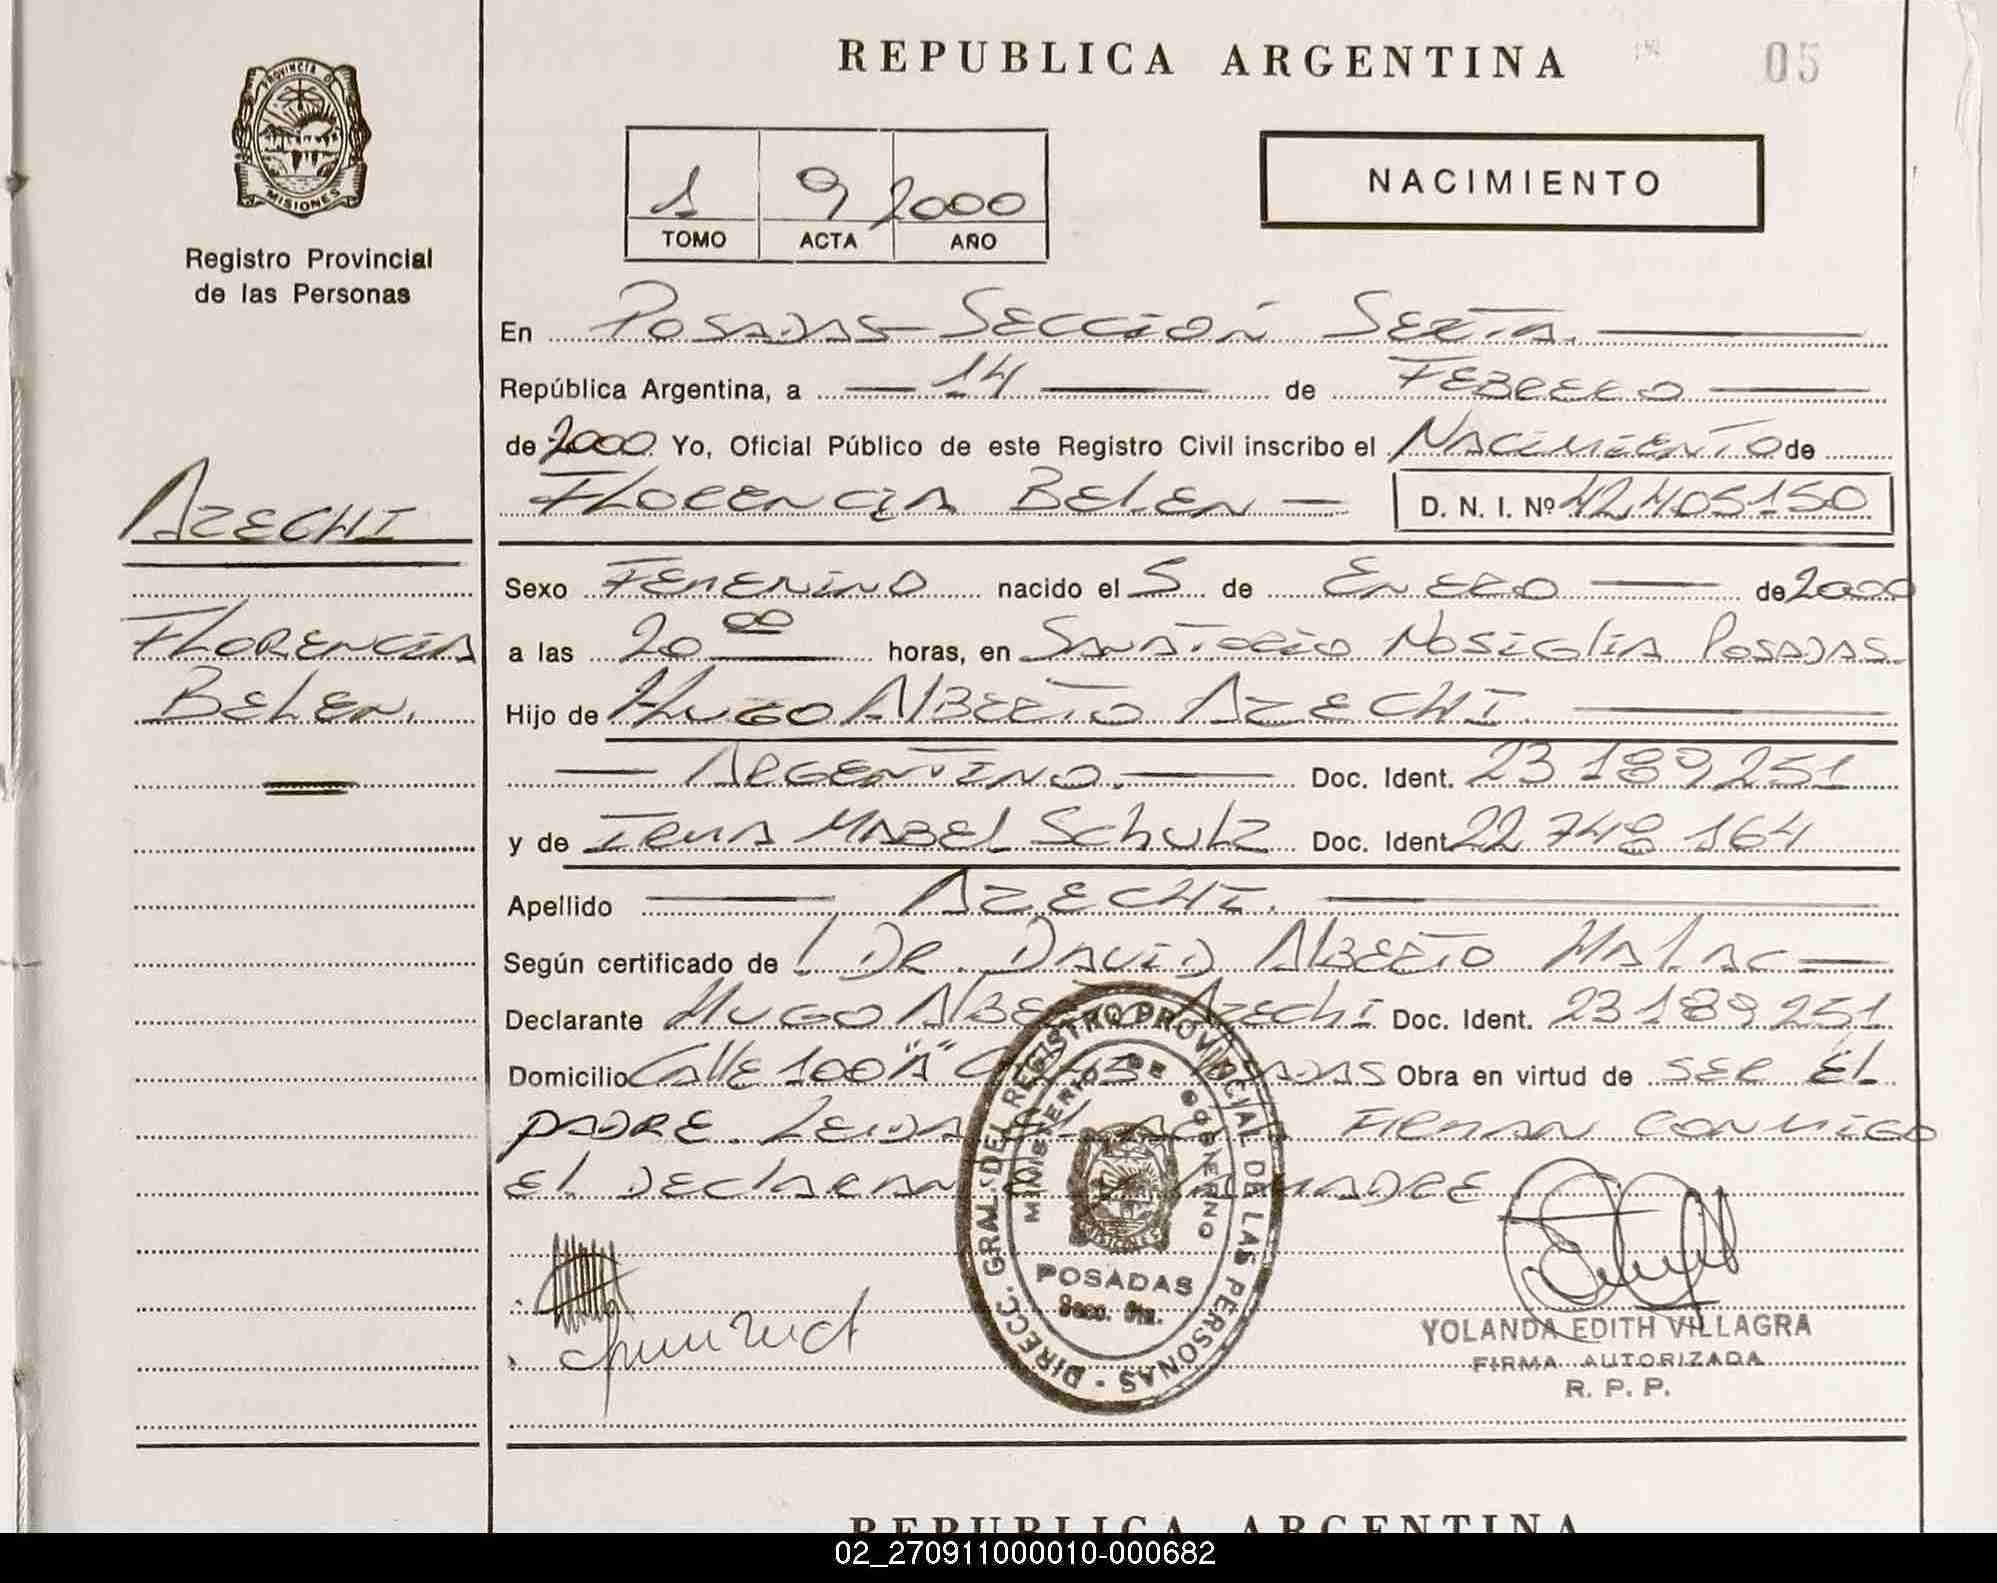 REPUBLICA ARGENTINA
05
PROVINCIA D
MISIONES
Registro Provincial
de las Personas
1 9 2000
TOMO ACTA AÑO
NACIMIENTO
En POSADAS SECCION SEXTA.
República Argentina, a 14 de FEBRERO
de 2000 Yo, Oficial Público de este Registro Civil inscribo el NACIMIENTO de
FLORENCIA BELEN D. N. I. Nº 42.405150
AZECHI
FLORENCIA
BELEN.
Sexo FEMENINO nacido el 5 de ENERO de 2000
a las 20 00 horas, en SANATORIO NOSIGLIA POSADAS
Hijo de HUGO ALBERTO AZECHI
ARGENTINO. Doc. Ident. 23 189 251
y de IRMA MABEL SCHULZ Doc. Ident. 22 748 164
Apellido AZECHI.
Según certificado de DR. DAVID ALBERTO MALAC
Declarante HUGO ALBE AZECHI Doc. Ident. 23 189 251
Domicilio CALLE 100 "A" Obra en virtud de SER EL
PADRE. LEIDA FIRMAN CONMIGO
EL DECLARAN MADRE
DIRECC. GRAL. DEL REGISTRO PROVINCIAL DE LAS PERSONAS
MINISTERIO DE GOBIERNO
POSADAS
Secc. 6ta.
YOLANDA EDITH VILLAGRA
FIRMA AUTORIZADA
R. P. P.
REPUBLICA ARGENTINA
02_270911000010-000682